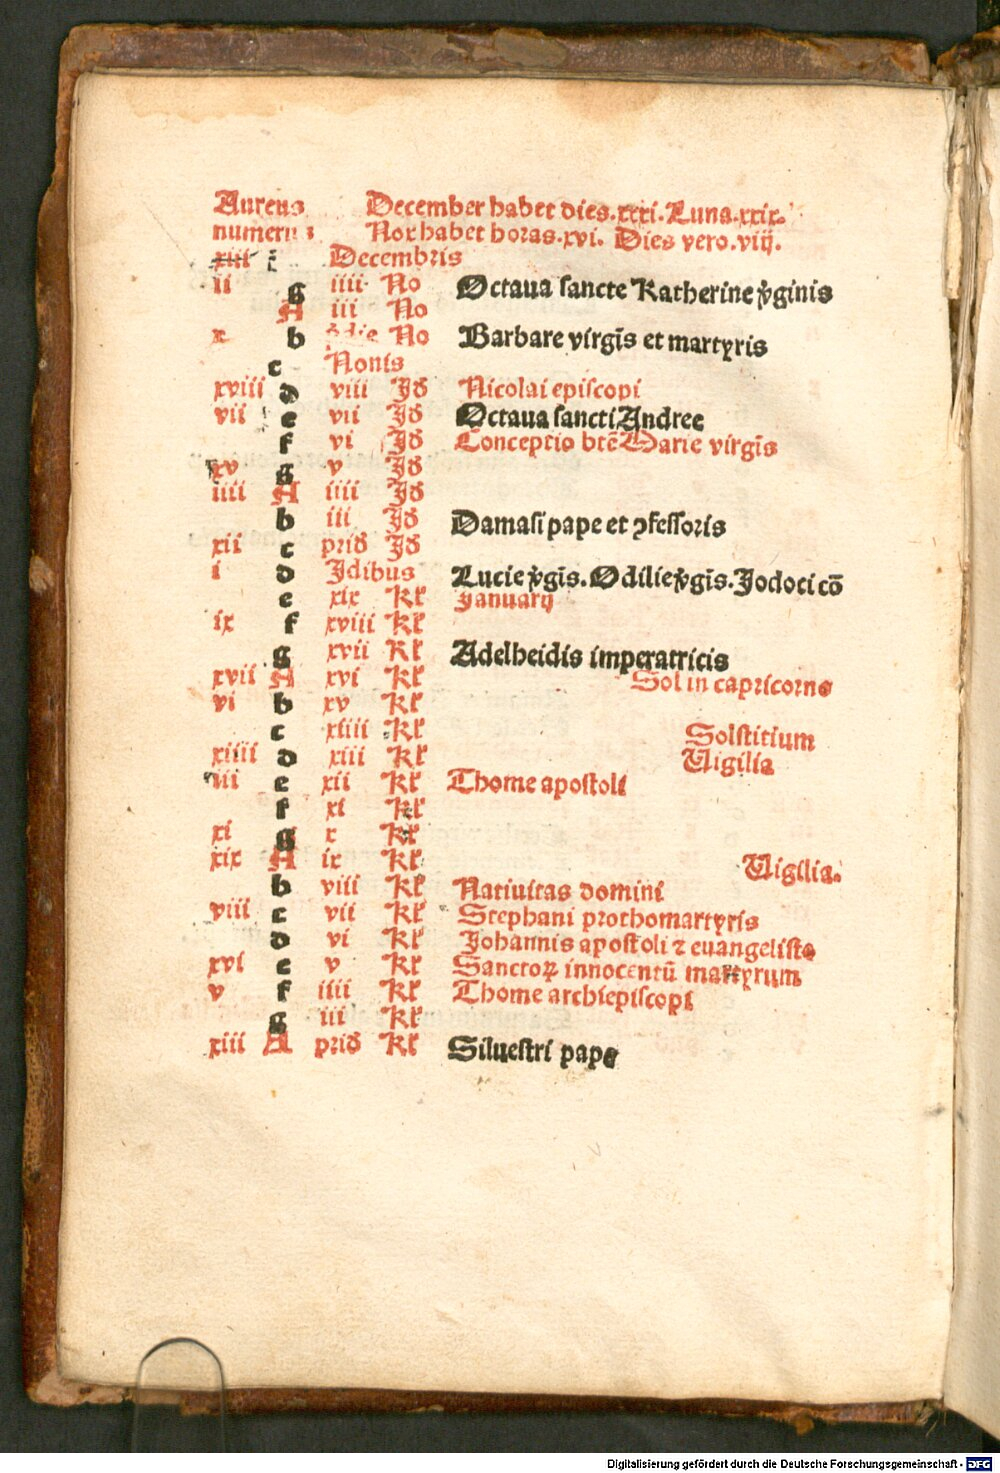 Aureus December habet dies.xxxi.Luna.xxix.
numerus Nox habet horas.xvi. Dies vero.viij.
xiii f Decembris
ii g iiii No Octaua sancte Katherine v̄ginis
A iii No
x b p̄die No Barbare virgīs et martyris
c Nonis
xviii d viii Jd Nicolai episcopi
vii e vii Jd Octaua sancti Andree
f vi Jd Conceptio btē Marie virgīs
xv g v Jd
iiii A iiii Jd
b iii Jd Damasi pape et ꝯfessoris
xii c prid Jd
i d Jdibus Lucie v̄gīs.Odilie v̄gīs.Jodoci cō
e xix Kl Januarij
ix f xviii Kl
g xvii Kl Adelheidis imperatricis
xvii A xvi Kl Sol in capricorno
vi b xv Kl
c xiiii Kl Solstitium
xiiii d xiii Kl Vigilia
iii e xii Kl Thome apostoli
f xi Kl
xi g x Kl
xix A ix Kl Vigilia.
b viii Kl Natiuitas domini
viii c vii Kl Stephani prothomartyris
d vi Kl Johannis apostoli ⁊ euangeliste
xvi e v Kl Sanctoꝝ innocentū martyrum
v f iiii Kl Thome archiepiscopi
g iii Kl
xiii A prid Kl Siluestri pape
Digitalisierung gefördert durch die Deutsche Forschungsgemeinschaft - DFG